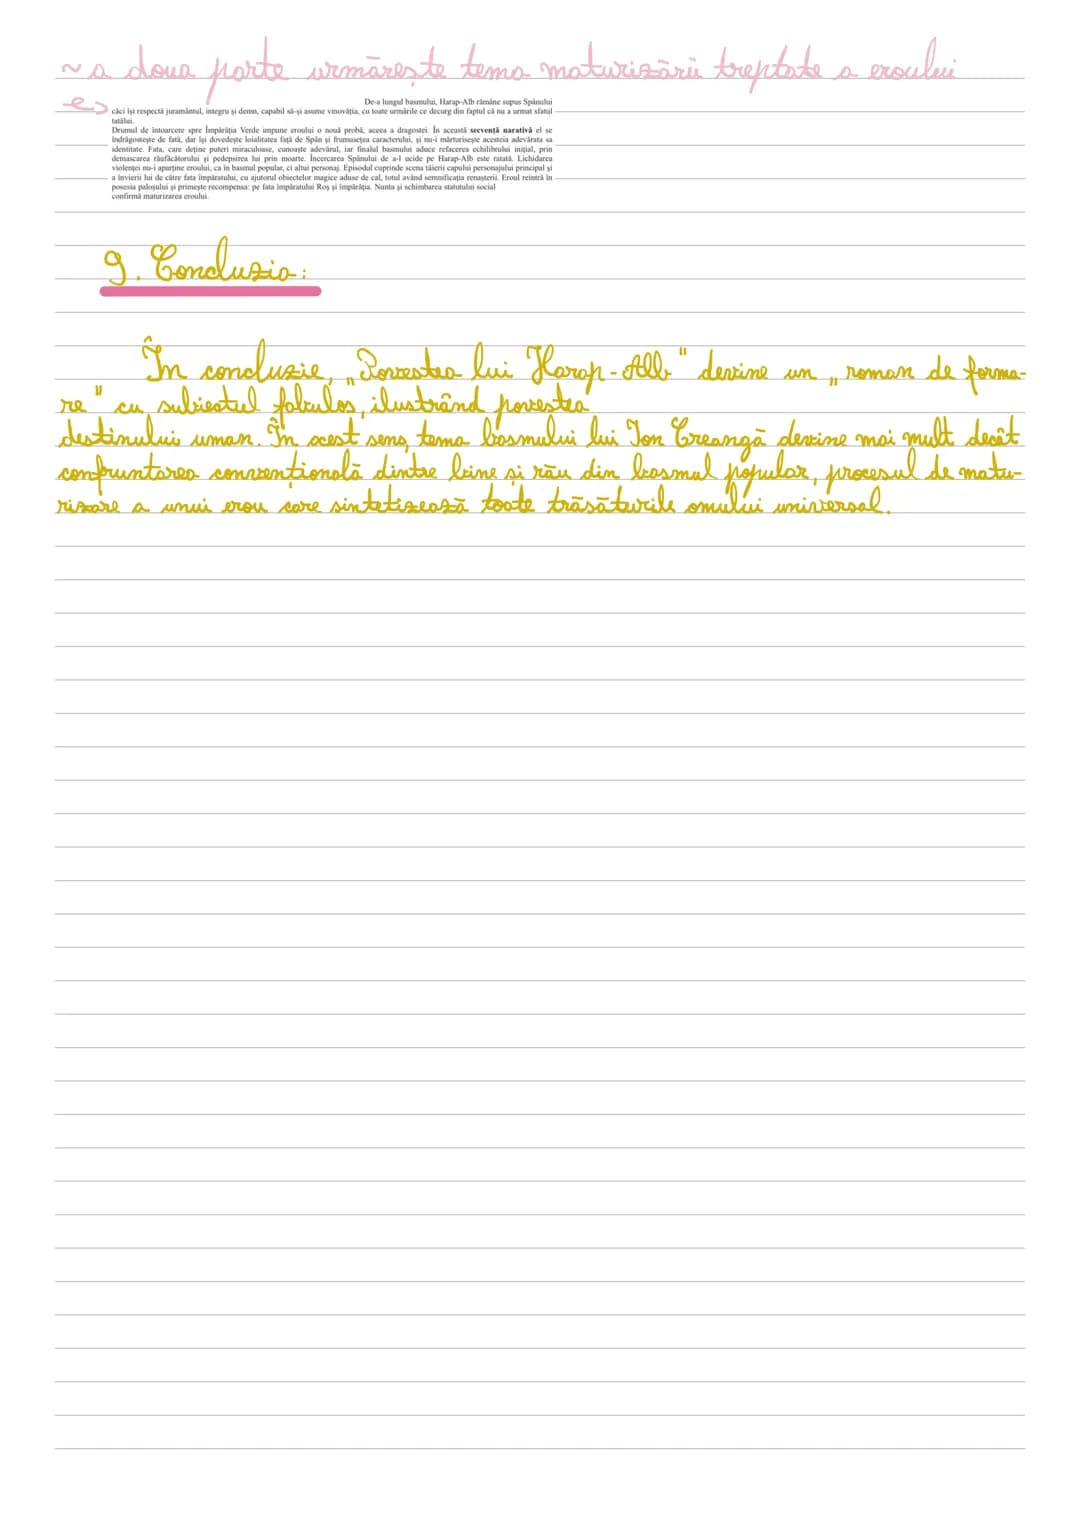 ~ a doua parte urmărește tema maturizării treptate a eroului
De-a lungul basmului, Harap-Alb rămâne supus Spânului
căci își respectă jurământul, integru și demn, capabil să-și asume vinovăția, cu toate urmările ce decurg din faptul că nu a urmat sfatul
tatălui.
Drumul de întoarcere spre Împărăția Verde impune eroului o nouă probă, aceea a dragostei. În această secvență narativă el se
îndrăgostește de fată, dar își dovedește loialitatea față de Spân și frumusețea caracterului, și nu-i mărturisește acesteia adevărata sa
identitate. Fata, care deține puteri miraculoase, cunoaște adevărul, iar finalul basmului aduce refacerea echilibrului inițial, prin
demascarea răufăcătorului și pedepsirea lui prin moarte. Încercarea Spânului de a-l ucide pe Harap-Alb este ratată. Lichidarea
violenței nu-i aparține eroului, ca în basmul popular, ci altui personaj. Episodul cuprinde scena tăierii capului personajului principal și
a învierii lui de către fata împăratului, cu ajutorul obiectelor magice aduse de cal, totul având semnificația renașterii. Eroul reintră în
posesia paloșului și primește recompensa: pe fata împăratului Roș și împărăția. Nunta și schimbarea statutului social
confirmă maturizarea eroului.
9. Concluzia:
În concluzie, „Povestea lui Harap-Alb" devine un „roman de forma-
re" cu subiectul fabulos, ilustrând povestea
destinului uman. În acest sens, tema basmului lui Ion Creangă devine mai mult decât
confruntarea convențională dintre bine și rău din basmul popular, procesul de matu-
rizare a unui erou care sintetizează toate trăsăturile omului universal.